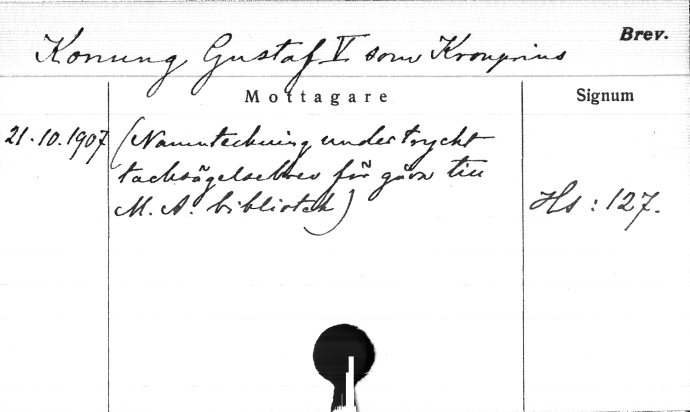 Brev.
Konung Gustaf V som Kronprins
Mottagare
Signum
21.10.1907
(Namnteckning under tryckt
tacksägelsebrev för gåva till
M. A. bibliotek)
Hs : 127.